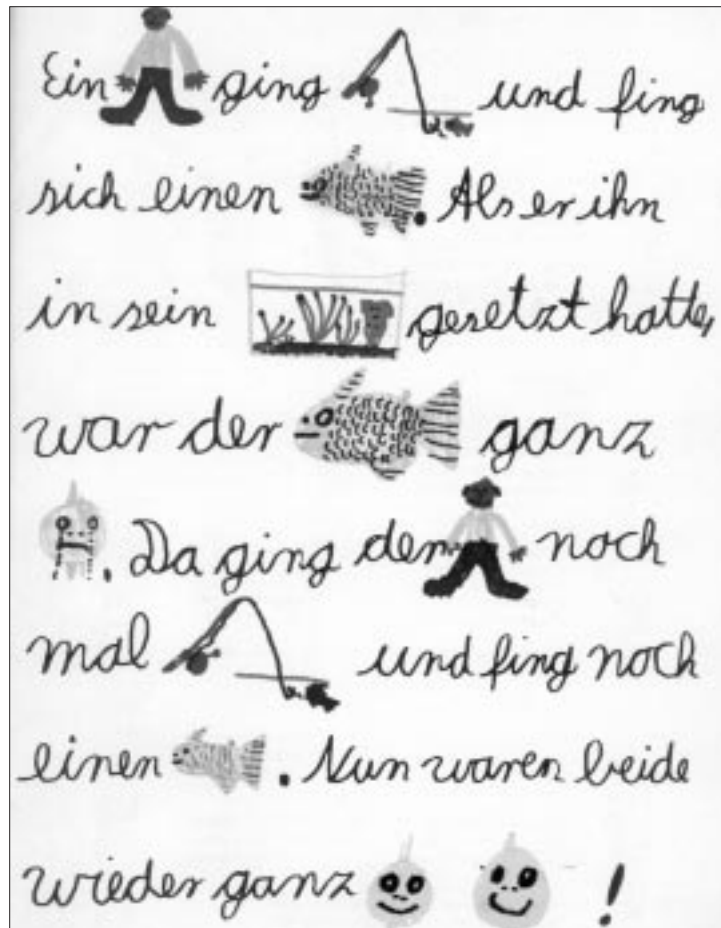 Ein ging und fing
sich einen . Als er ihn
in sein gesetzt hatte,
war der ganz
. Da ging der noch
mal und fing noch
einen . Nun waren beide
wieder ganz !